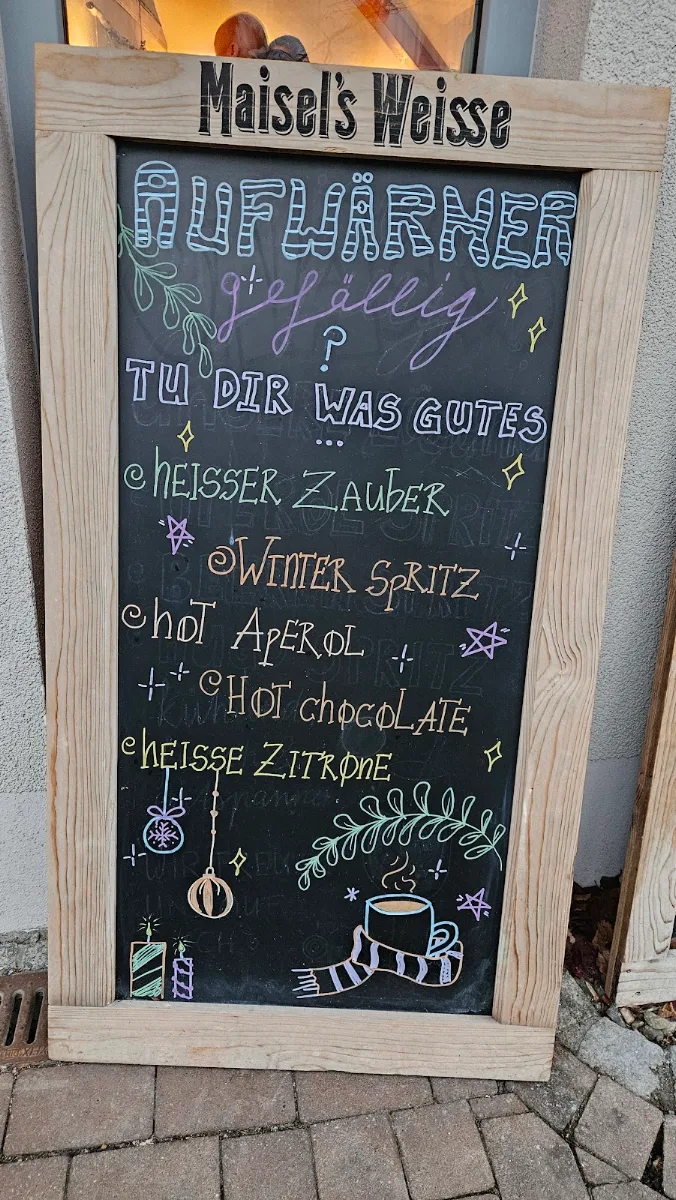 Maisel's Weisse
AUFWÄRMER
gefällig
?
TU DIR WAS GUTES
...
hEISSER ZAUbER
WINTER SpRITZ
hOT APEROL
HOT chocoLATE
hEISSE ZITRONE